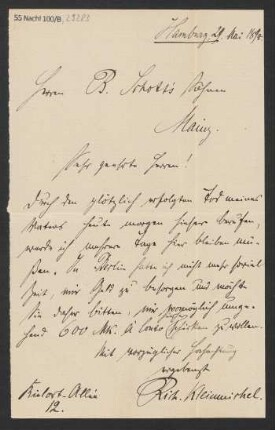 55 Nachl 100/B,
Hamburg 28 Mai 1890
Herren B. Schott's Söhnen
Mainz.
Sehr geehrte Herren!
Durch den plötzlich erfolgten Tod meines
Vaters heute morgen hieher berufen,
werde ich mehrere Tage hier bleiben müs-
sen. In Berlin hatte ich nicht mehr soviel
Zeit, mir Geld zu besorgen und möchte
Sie daher bitten, mir womöglich umge-
hend 600 Mk. à Conto schicken zu wollen.
Mit vorzüglicher Hochachtung
ergebenst
Rich. Kleinmichel
Kielort-Allee
12.